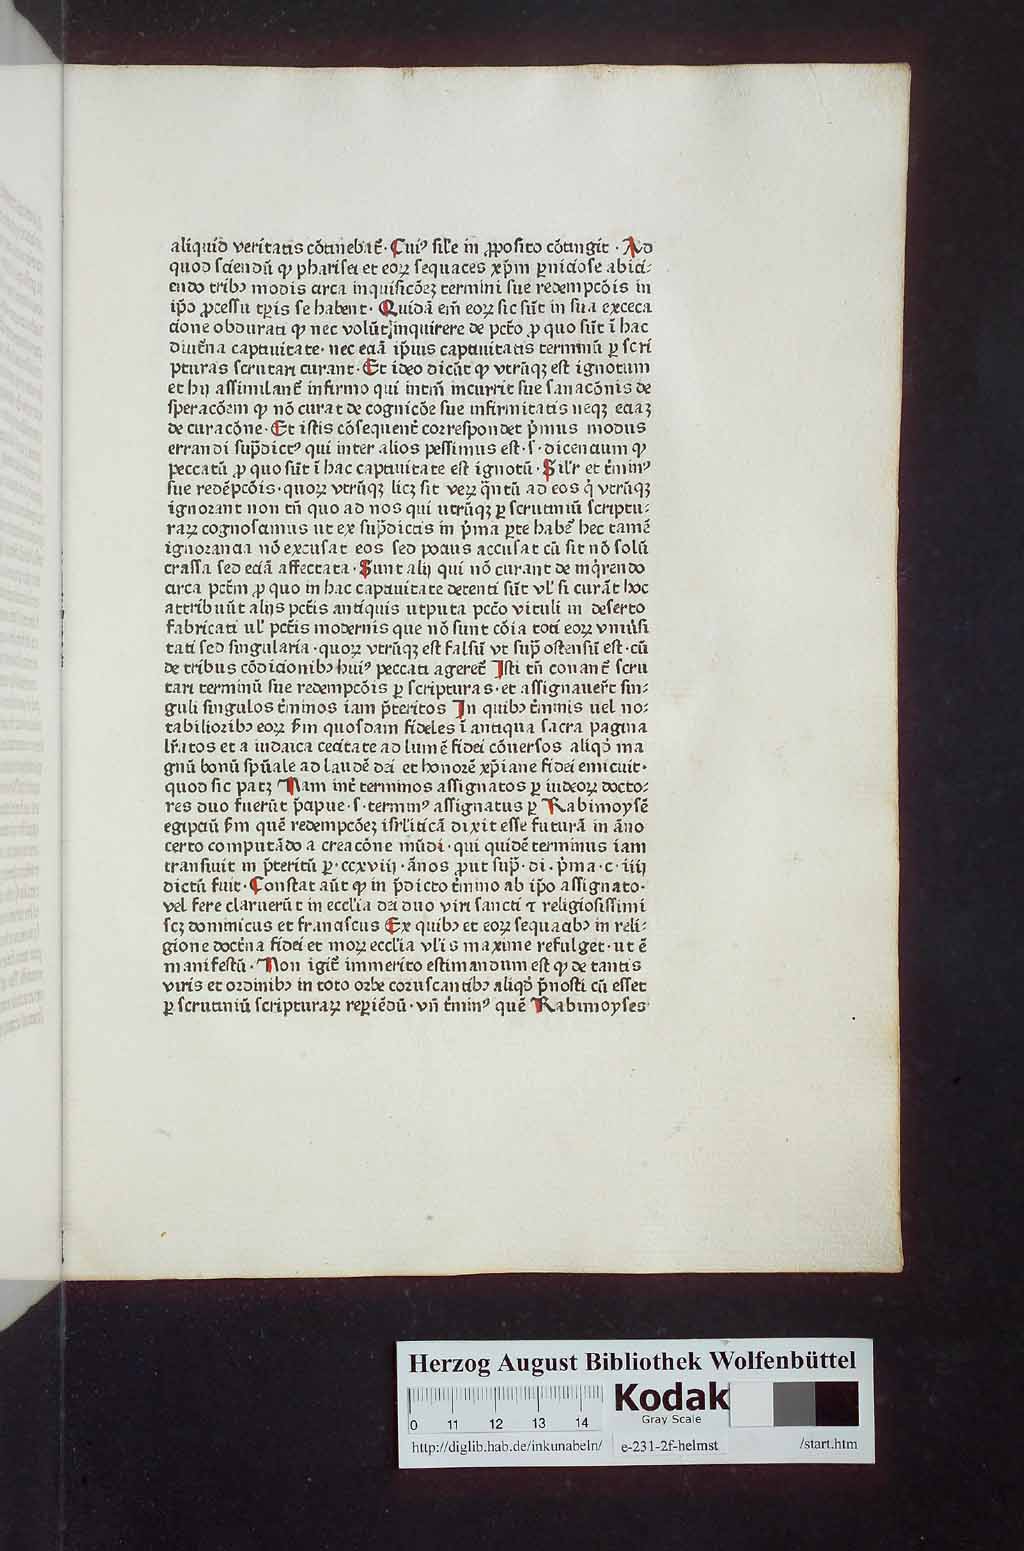 aliquid veritatis cōtinebat᷑. Cuiꝰ sil̄e in ꝓposito cōtingit. Ad
quod sciendū ꝙ pharisei et eoꝝ sequaces xp̄m ꝑniciose abici-
endo tribꝫ modis circa inquisicōeꝫ termini sue redempcōis in
ip̄o ꝓcessu tp̄is se habent. Quidā em̄ eoꝝ sic sūt in sua exceca
cione obdurati ꝙ nec volūt inquirere de pctō ꝓ quo sūt ī hac
diut̄na captiuitate. nec eciā ip̄ius captiuitatis terminū ꝑ scri
pturas scrutari curant. Et ideo dicūt ꝙ vtrūqꝫ est ignotum
et hij assimilant᷑ infirmo qui intm̄ incurrit sue sanacōnis de
speracōem ꝙ nō curat de cognicōe sue infirmitatis neqꝫ eciaꝫ
de curacōne. Et istis cōsequent᷑ correspondet p̄mus modus
errandi sup̄dictꝰ qui inter alios pessimus est. s. dicencium ꝙ
peccatū ꝓ quo sūt ī hac captiuitate est ignotū. Sil̄r et t̄minꝰ
sue redēpcōis. quoꝝ vtrūqꝫ licꝫ sit veꝝ q̄ntū ad eos qͥ vtrūqꝫ
ignorant non tn̄ quo ad nos qui utrūqꝫ ꝑ scrutiniū scriptu-
raꝝ cognoscimus ut ex sup̄dictis in p̄ma ꝑte habet᷑ hec tamē
ignorancia nō excusat eos sed pocius accusat cū sit nō solū
crassa sed eciā affectata. Sunt alij qui nō curant de inq̄rendo
circa pctm̄ ꝓ quo in hac captiuitate detenti sūt vl̄ si curāt hoc
attribuūt alijs pctīs antiquis utputa pctō vituli in deserto
fabricati ul̄ pctīs modernis que nō sunt cōia toti eoꝝ vniu̇si
tati sed singularia. quoꝝ vtrūqꝫ est falsū vt sup̄ ostensū est. cū
de tribus cōdicionibꝫ huiꝰ peccati ageret᷑ Isti tn̄ conant᷑ scru
tari terminū sue redempcōis ꝑ scripturas. et assignauer̄t sin-
guli singulos t̄minos iam p̄teritos In quibꝫ t̄minis uel no-
tabilioribꝫ eoꝝ s̄m quosdam fideles ī antiqua sacra pagina
lr̄atos et a iudaica cecitate ad lumē fidei cōuersos aliqd̓ ma
gnū bonū sp̄uale ad laudē dei et honorē xp̄iane fidei emicuit.
quod sic patꝫ Nam int̄ terminos assignatos ꝑ iudeoꝝ docto-
res duo fuerūt p̄cipue. s. terminꝰ assignatus ꝑ Rabimoysē
egipciū s̄m quē redempcōeꝫ isrl̄iticā dixit esse futurā in āno
certo computādo a creacōne mūdi. qui quidē terminus iam
transiuit in p̄teritū ꝑ. ccxviij. ānos ꝓut sup̄. di. p̄ma. c. iiij
dictū fuit. Constat aūt ꝙ in p̄dicto t̄mino ab ip̄o assignato.
vel fere claruerūt in eccl̄ia dei duo viri sancti ⁊ religiosissimi
scꝫ dominicus et franciscus Ex quibꝫ et eoꝝ sequacibꝫ in reli-
gione doct̄na fidei et moꝝ eccl̄ia vl̄is maxime refulget. ut ē
manifestū. Non igit᷑ immerito estimandum est ꝙ de tantis
viris et ordinibꝫ in toto orbe coruscantibꝫ aliqd̓ p̄nosti cū esset
ꝑ scrutiniū scripturaꝝ reꝑiēdū. vn̄ t̄minꝰ quē Rabimoyses
Herzog August Bibliothek Wolfenbüttel
0 11 12 13 14
Kodak
Gray Scale
http://diglib.hab.de/inkunabeln/ e-231-2f-helmst /start.htm